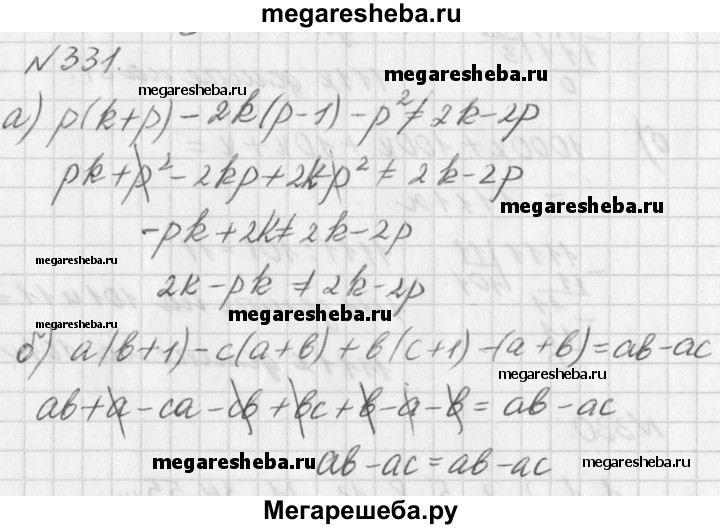 megaresheba.ru
№331.
megaresheba.ru megaresheba.ru
а) p(k+p) - 2k(p-1) - p² ≠ 2k-2p
pk+p² - 2kp+2k-p² ≠ 2k-2p
megaresheba.ru
-pk+2k ≠ 2k-2p
megaresheba.ru
2k-pk ≠ 2k-2p
megaresheba.ru
megaresheba.ru
б) a(b+1) - c(a+b) + b(c+1) - (a+b) = ab-ac
megaresheba.ru
ab+a-ca-cb+bc+b-a-b = ab-ac
megaresheba.ru ab-ac = ab-ac
megaresheba.ru
Мегарешеба.ру